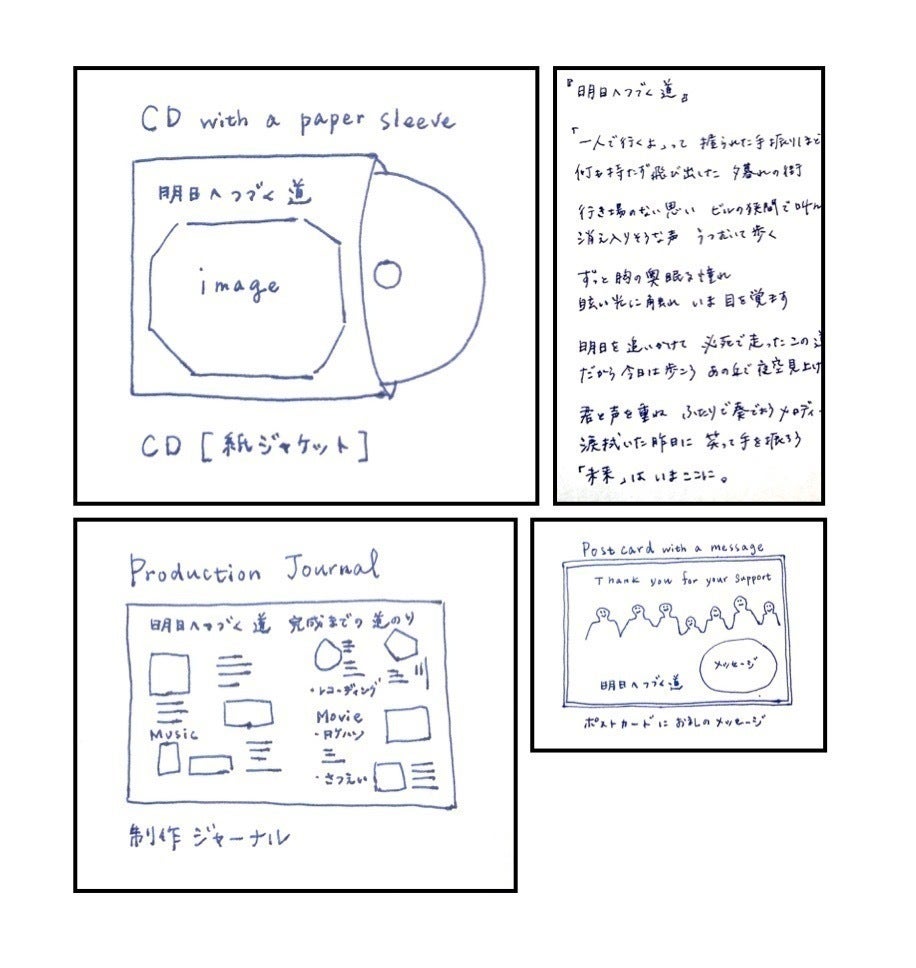 CD with a paper sleeve
明日へつづく道
image
CD [紙ジャケット]
『明日へつづく道』
「一人で行くよ」って 握られた手振りほど
何も持たず飛び出した 夕暮れの街
行き場のない思い ビルの狭間で叫ん
消え入りそうな声 うつむいて歩く
ずっと胸の奥眠る憧れ
眩い光に触れ いま目を覚ます
明日を追いかけて 必死で走ったこの道
だから今日は歩こう あの丘で夜空見上げ
君と声を重ね ふたりで奏でおう メロディー
涙拭いた昨日に 笑って手を振ろう
「未来」は いまここに。
Production Journal
明日へつづく道 完成までの道のり
・レコーディング
Music
Movie
・ロケハン
・さつえい
制作ジャーナル
Post card with a message
Thank you for your support
メッセージ
明日へつづく道
ポストカードにお礼のメッセージ